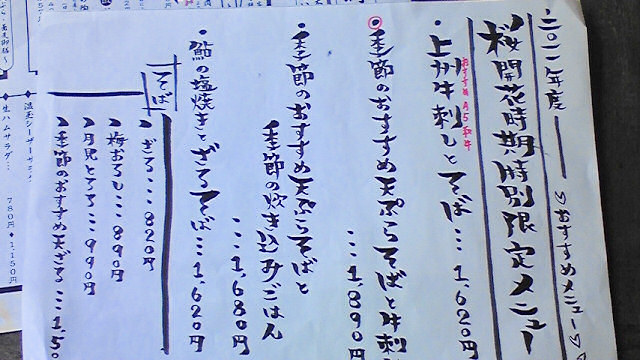 二〇一一年度
♡おすすめメニュー♡
桜開花時期特別限定メニュー
おすすめ A5和牛
・上州牛刺しとそば…1,620円
・季節のおすすめ天ぷらそばと牛刺
…1,890円
・季節のおすすめ天ぷらそばと
季節の炊き込みごはん
…1,680円
・鮎の塩焼きとざるそば…1,620円
そば
ざる…820円
梅おろし…890円
月見とろろ…990円
季節のおすすめ天ざる…1,50
温玉シーザーサラダ
生ハムサラダ…
780円
1,150円